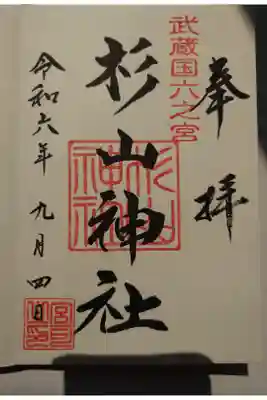 奉拝
武蔵国六之宮
杉山神社
令和六年 九月四日